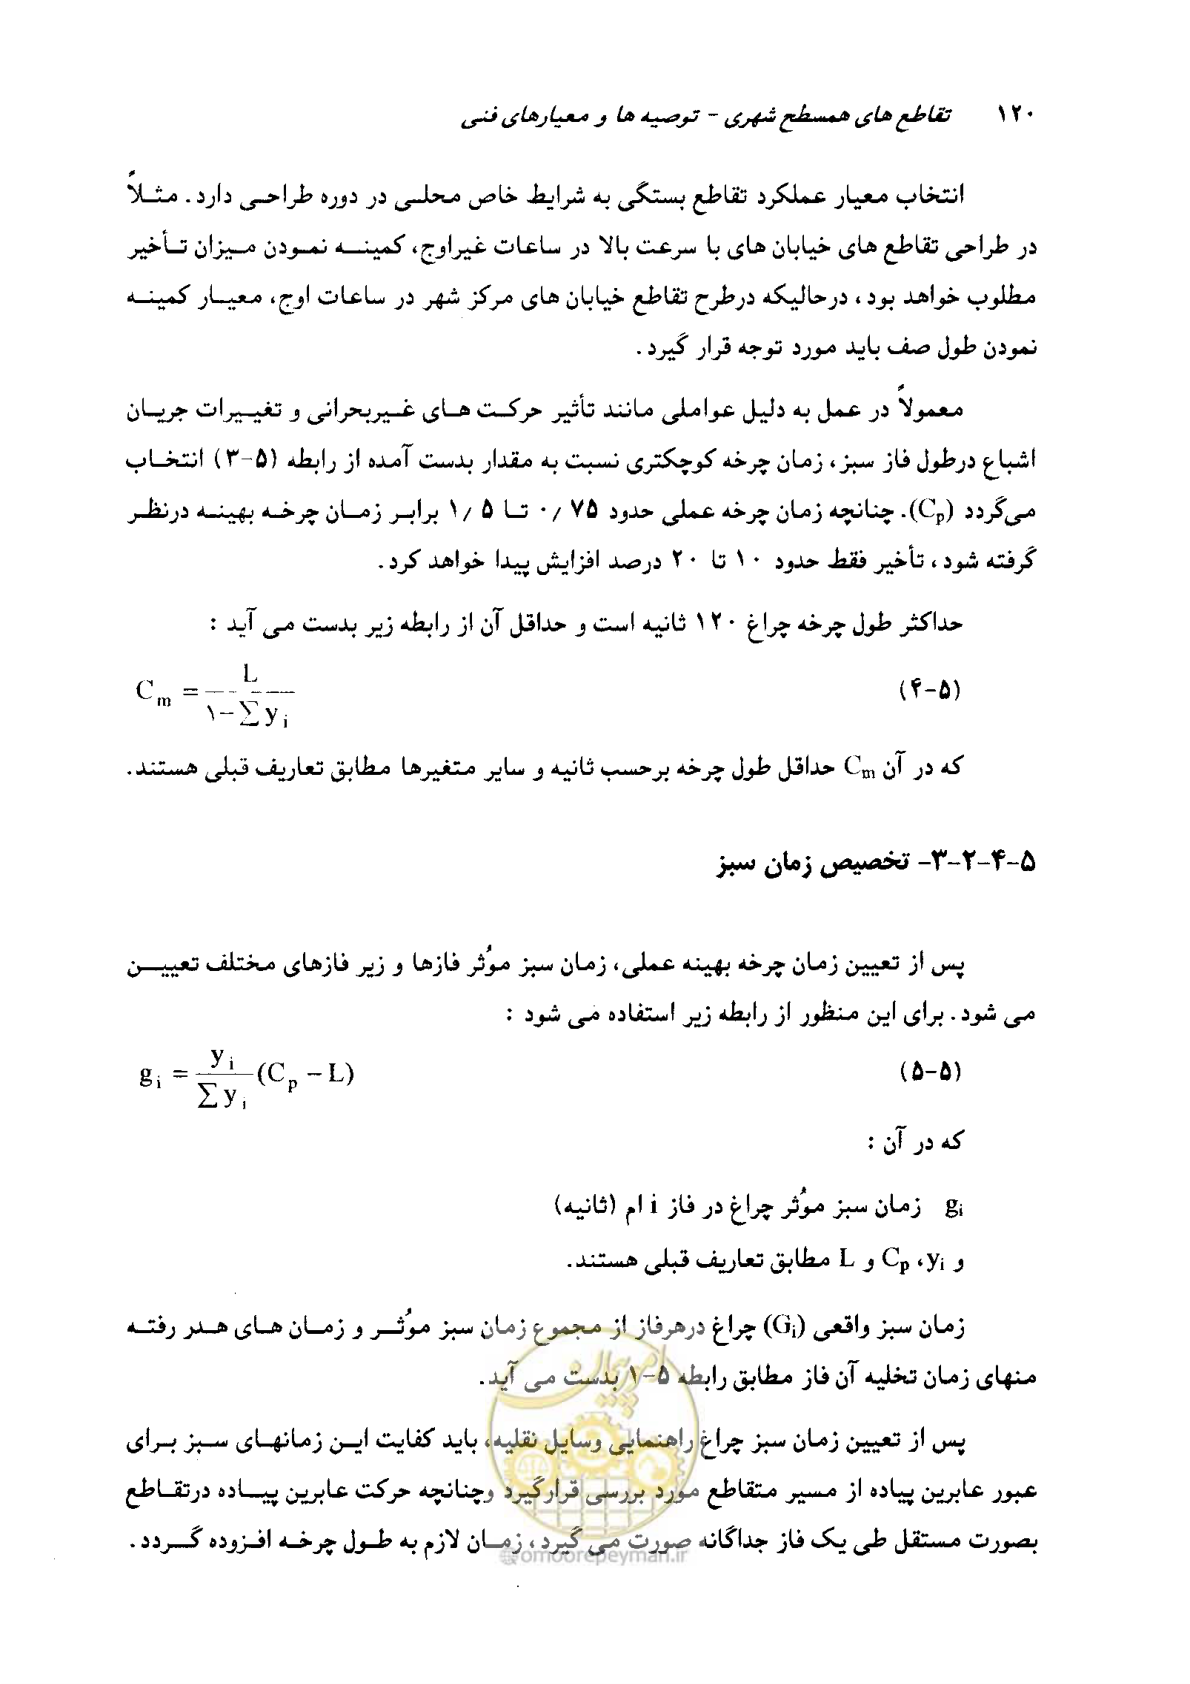 ۱۲۰ تقاطع های همسطح شهری - توصیه ها و معیارهای فنی
انتخاب معیار عملکرد تقاطع بستگی به شرایط خاص محلی در دوره طراحی دارد. مثلاً
در طراحی تقاطع های خیابان های با سرعت بالا در ساعات غیراوج، کمینه نمودن میزان تأخیر
مطلوب خواهد بود، درحالیکه درطرح تقاطع خیابان های مرکز شهر در ساعات اوج، معیار کمینه
نمودن طول صف باید مورد توجه قرار گیرد.
معمولاً در عمل به دلیل عواملی مانند تأثیر حرکت های غیربحرانی و تغییرات جریان
اشباع درطول فاز سبز، زمان چرخه کوچکتری نسبت به مقدار بدست آمده از رابطه (۵-۳) انتخاب
می‌گردد (Cp). چنانچه زمان چرخه عملی حدود ۰/۷۵ تا ۱/۵ برابر زمان چرخه بهینه درنظر
گرفته شود، تأخیر فقط حدود ۱۰ تا ۲۰ درصد افزایش پیدا خواهد کرد.
حداکثر طول چرخه چراغ ۱۲۰ ثانیه است و حداقل آن از رابطه زیر بدست می آید :
(۵-۴) Cm = L / (۱-∑yi)
که در آن Cm حداقل طول چرخه برحسب ثانیه و سایر متغیرها مطابق تعاریف قبلی هستند.
۵-۴-۲-۳- تخصیص زمان سبز
پس از تعیین زمان چرخه بهینه عملی، زمان سبز مؤثر فازها و زیر فازهای مختلف تعیین
می شود. برای این منظور از رابطه زیر استفاده می شود :
(۵-۵) gi = yi / ∑yi (Cp - L)
که در آن :
gi زمان سبز مؤثر چراغ در فاز i ام (ثانیه)
و yi، Cp و L مطابق تعاریف قبلی هستند.
زمان سبز واقعی (Gi) چراغ درهرفاز از مجموع زمان سبز مؤثر و زمان های هدر رفته
منهای زمان تخلیه آن فاز مطابق رابطه ۵-۱ بدست می آید.
پس از تعیین زمان سبز چراغ راهنمایی وسایل نقلیه، باید کفایت این زمانهای سبز برای
عبور عابرین پیاده از مسیر متقاطع مورد بررسی قرارگیرد وچنانچه حرکت عابرین پیاده درتقاطع
بصورت مستقل طی یک فاز جداگانه صورت می گیرد، زمان لازم به طول چرخه افزوده گردد.
امور پیمان
@omoorepeyman.ir